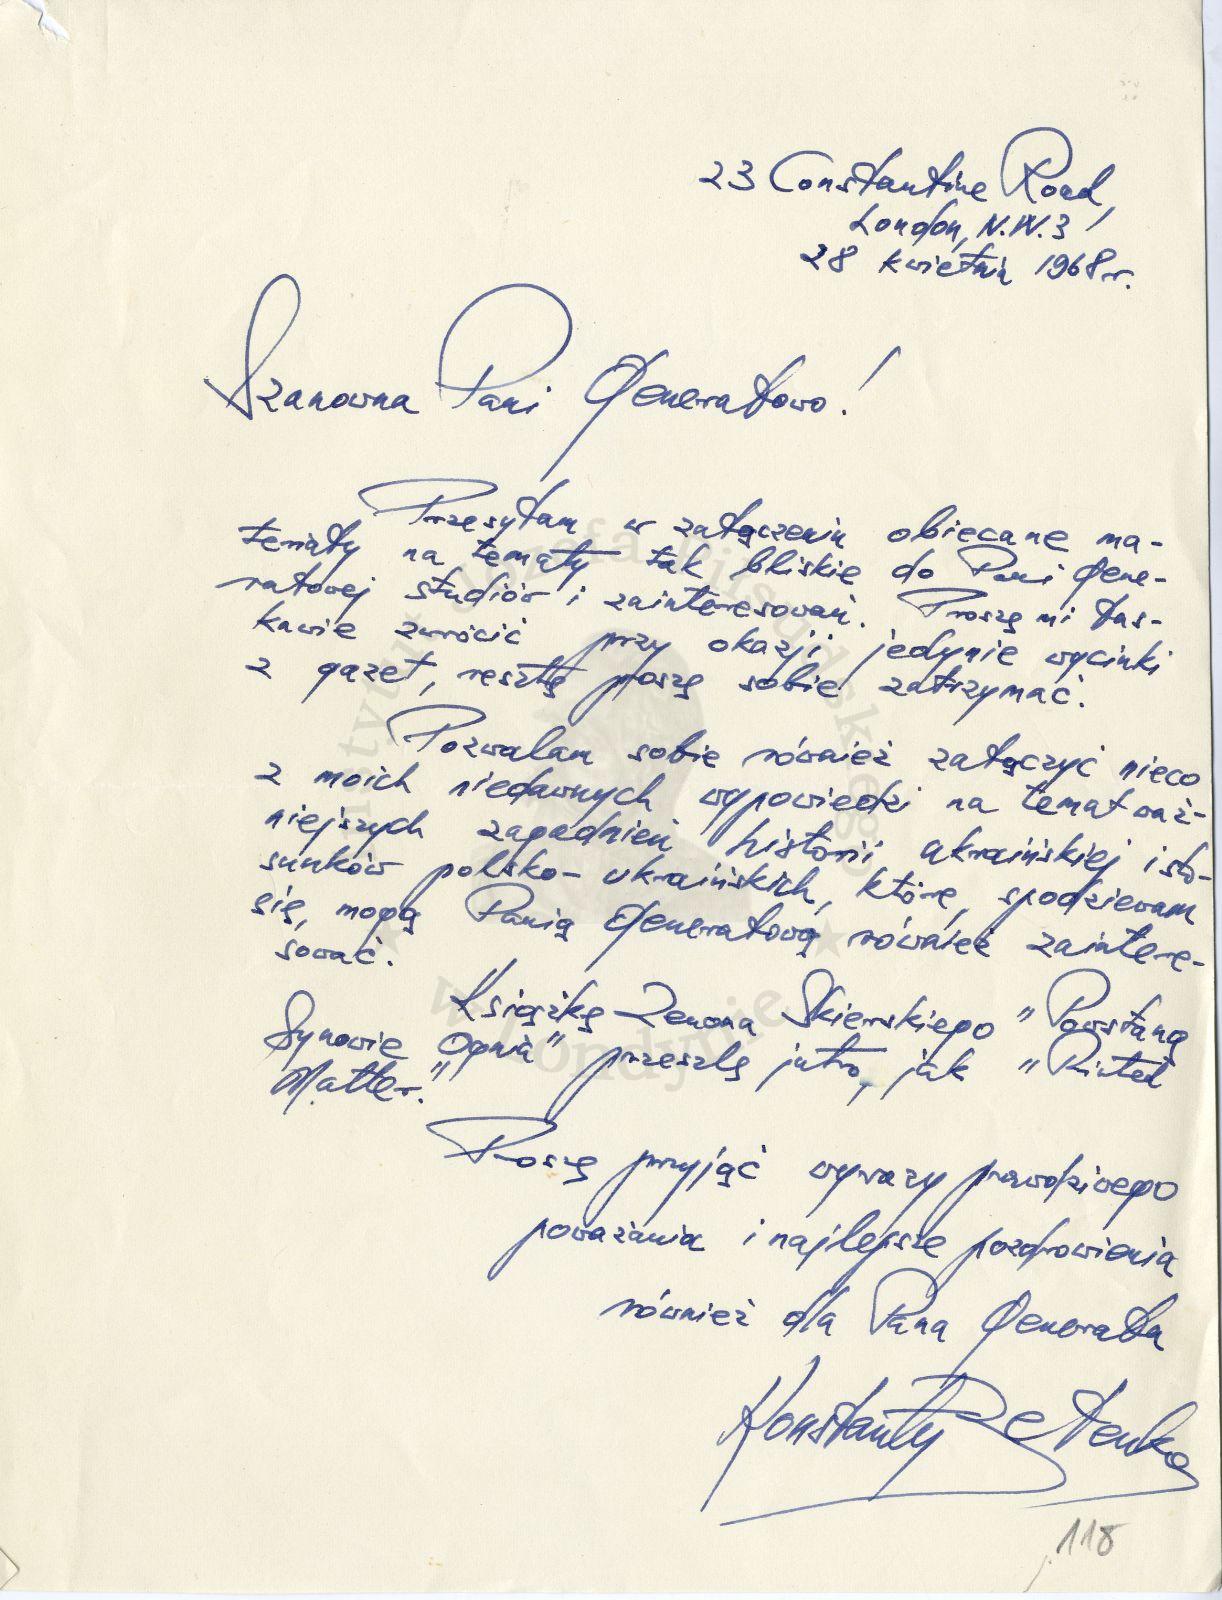 23 Constantine Road,
London, N.W.3
28 kwietnia 1968 r.
Szanowna Pani Generałowo!
Przesyłam w załączeniu obiecane ma-
teriały na tematy tak bliskie do Pani Gene-
rałowej studiów i zainteresowań. Proszę mi łas-
kawie zwrócić przy okazji jedynie wycinki
z gazet, resztę proszę sobie zatrzymać.
Pozwalam sobie również załączyć nieco
z moich niedawnych wypowiedzi na temat waż-
niejszych zagadnień historii ukraińskiej i sto-
sunków polsko-ukraińskich, które, spodziewam
się, mogą Panią Generałową również zaintere-
sować.
Książkę Zenona Skierskiego "Powstaną
Synowie Ognia" prześlę jutro, jak "Printed
Matter."
Proszę przyjąć wyrazy prawdziwego
poważania i najlepsze pozdrowienia
również dla Pana Generała
Konstanty Zelenko
118
Instytut Józefa Piłsudskiego
w Londynie